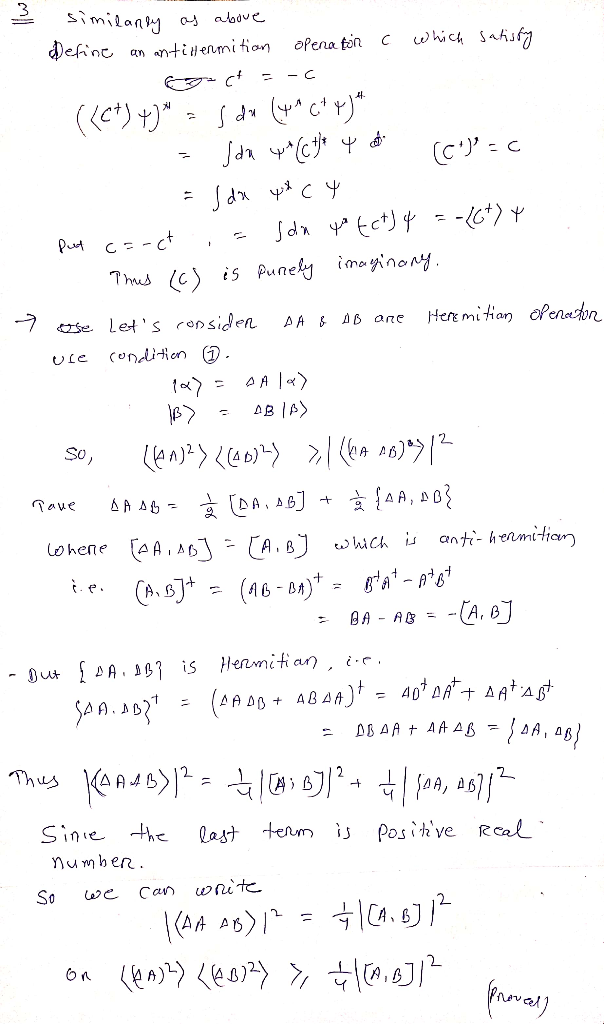 3 Similarly as above
Define an antiHermitian operator c which satisfy
c† = -c
(⟨c†⟩ψ)* = ∫dx (ψ* c† ψ)*
= ∫dx ψ* (c†)* ψ (c†)* = c
= ∫dx ψ* c ψ
Put c = -c† , = ∫dx ψ* (-c†) ψ = -⟨c†⟩ψ
Thus ⟨c⟩ is purely imaginary.
→ Let's consider ΔA & ΔB are Heremitian operator
use condition ①.
|α⟩ = ΔA |α⟩
|B⟩ = ΔB |B⟩
So, ⟨(ΔA)²⟩ ⟨(ΔB)²⟩ ≥ |⟨(ΔA ΔB)*⟩|²
Take ΔA ΔB = 1/2 [ΔA, ΔB] + 1/2 {ΔA, ΔB}
where [ΔA, ΔB] = [A, B] which is anti-hermitian
i.e. [A, B]† = (AB - BA)† = B†A† - A†B†
= BA - AB = -[A, B]
- But {ΔA, ΔB} is Hermitian, i.e.
{ΔA, ΔB}† = (ΔA ΔB + ΔB ΔA)† = ΔB† ΔA† + ΔA† ΔB†
= ΔB ΔA + ΔA ΔB = {ΔA, ΔB}
Thus |⟨ΔA ΔB⟩|² = 1/4 |[A, B]|² + 1/4 |{ΔA, ΔB}|²
Since the last term is positive real
number.
So we can write
|⟨ΔA ΔB⟩|² = 1/4 |[A, B]|²
or ⟨(ΔA)²⟩ ⟨(ΔB)²⟩ ≥ 1/4 |[A, B]|²
(proved)